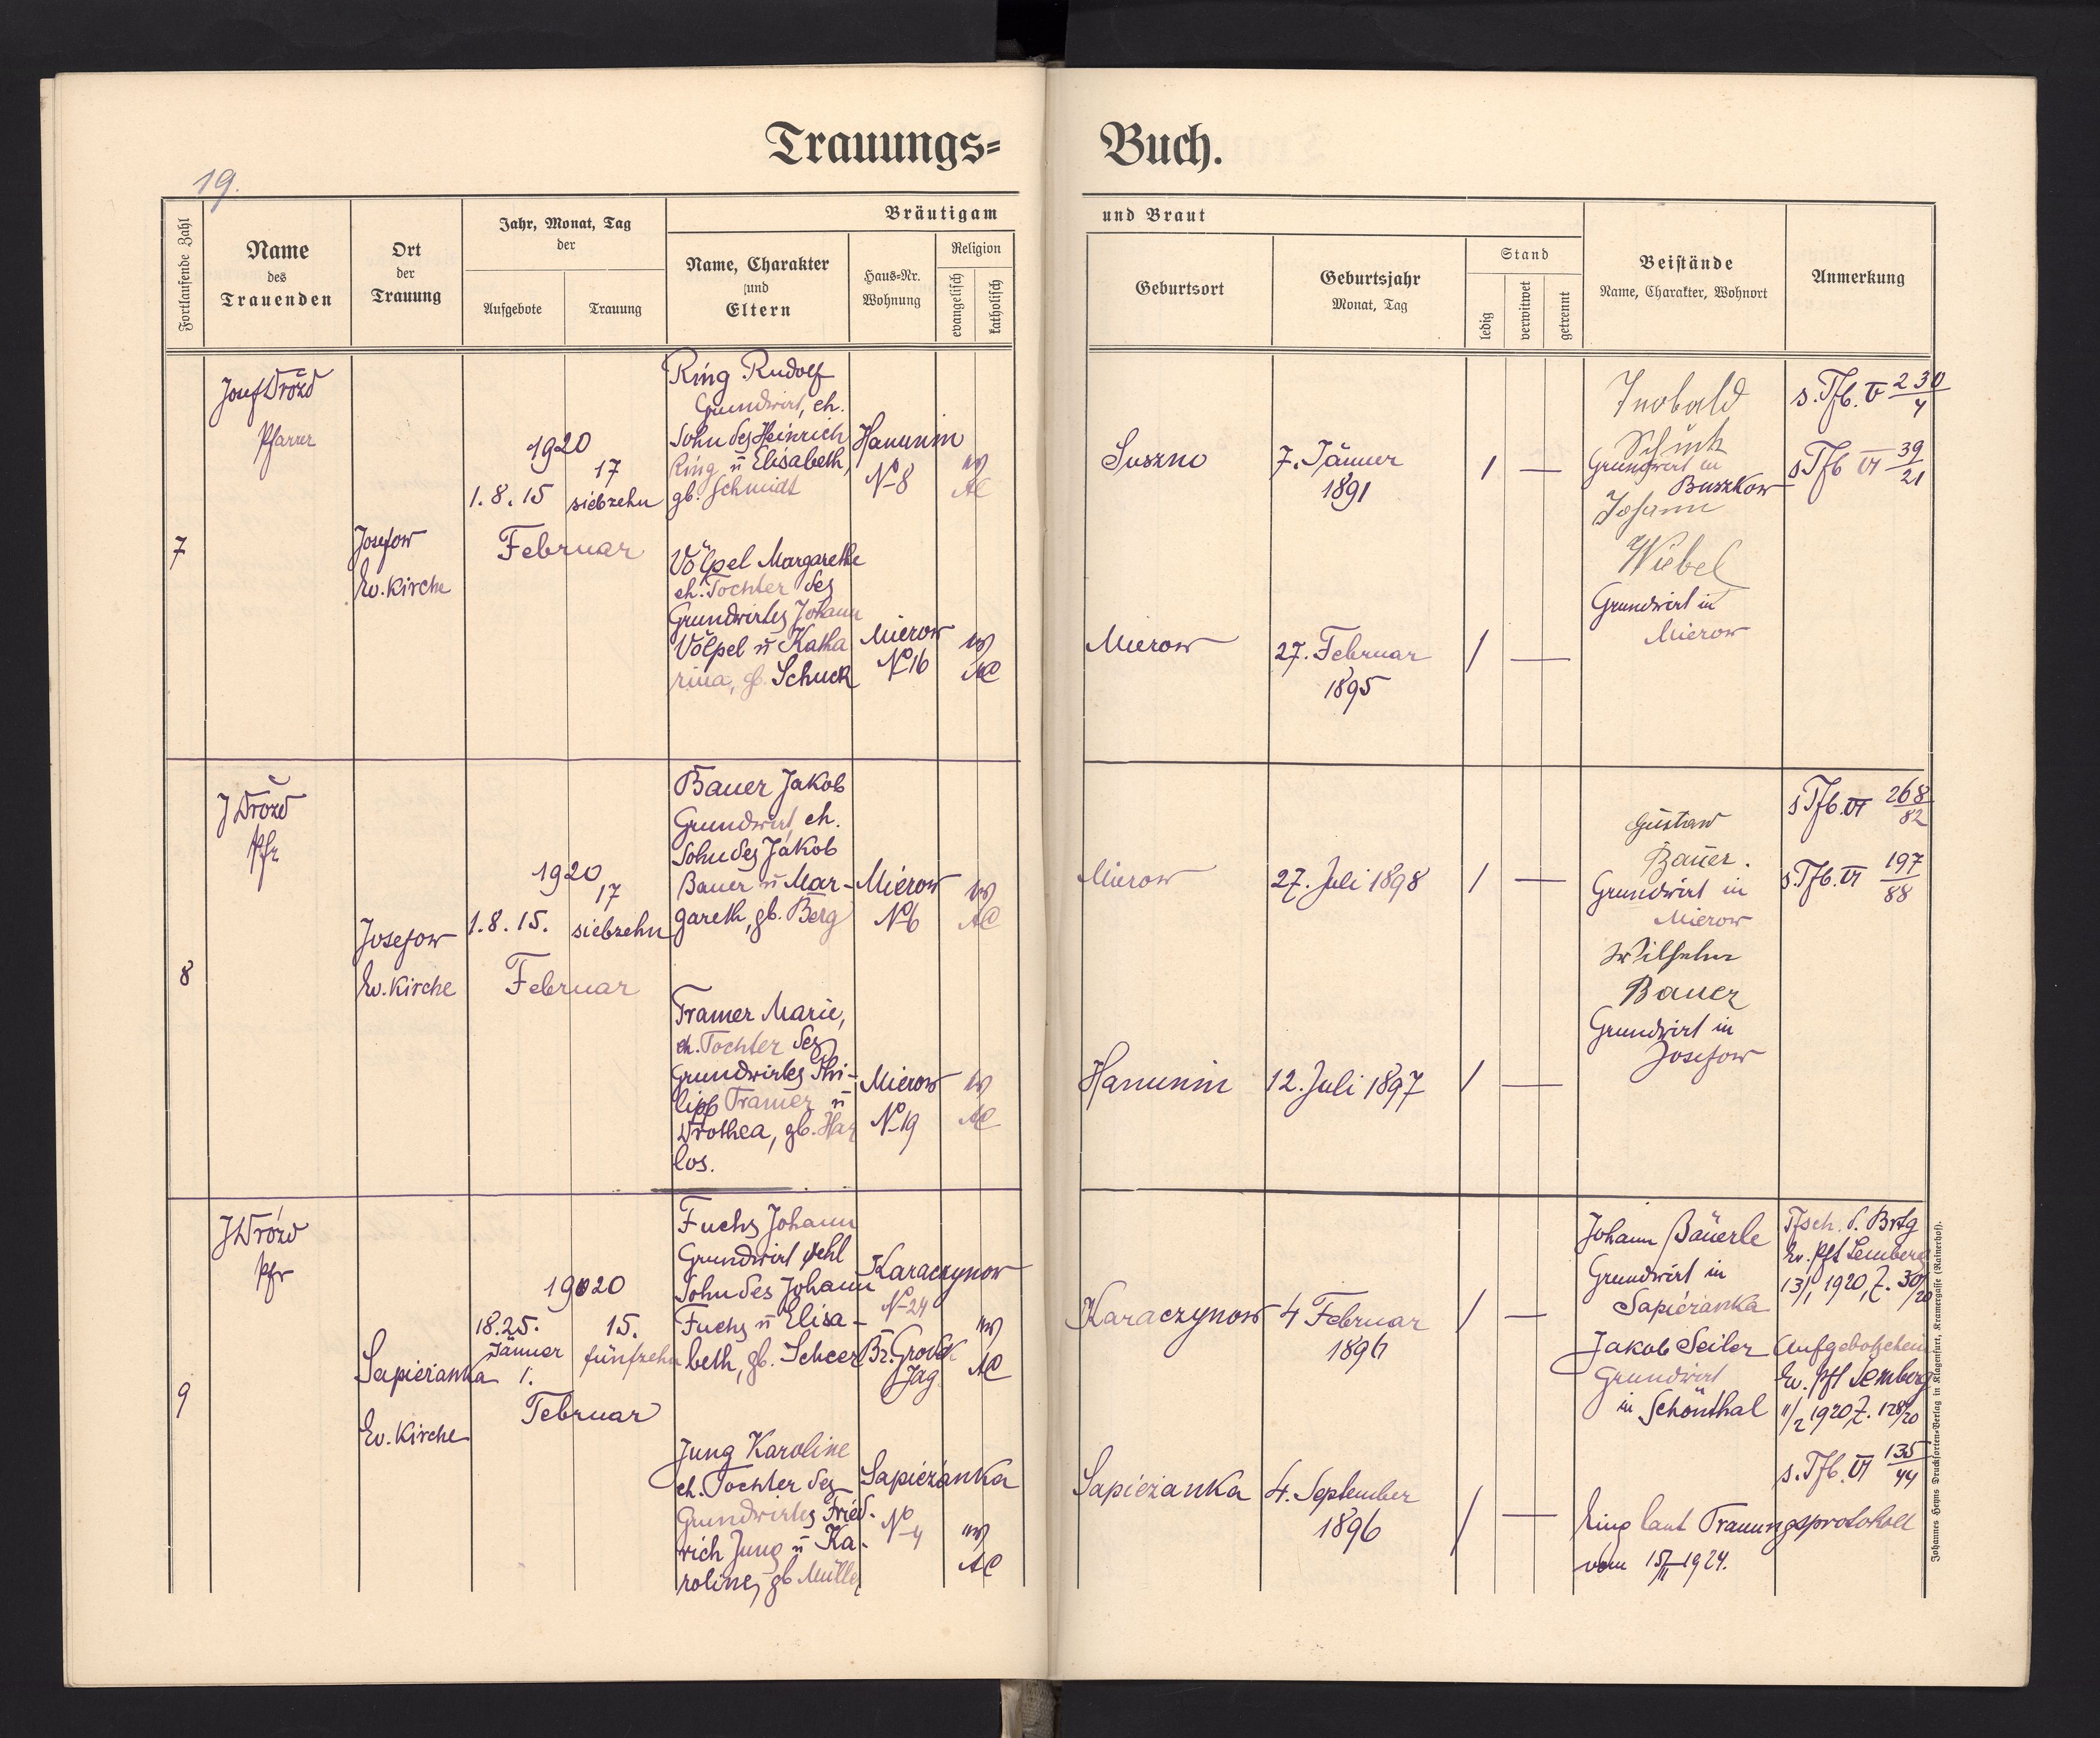 Trauungs= Buch.
19.
Fortlaufende Zahl
Name
des
Trauenden
Ort
der
Trauung
Jahr, Monat, Tag
der
Aufgebote
Trauung
Bräutigam
Name, Charakter
und
Eltern
Haus=Nr.
Wohnung
Religion
evangelisch
katholisch
und Braut
Geburtsort
Geburtsjahr
Monat, Tag
Stand
ledig
verwitwet
getrennt
Beistände
Name, Charakter, Wohnort
Anmerkung
7
Josef Drozd
Pfarrer
Josefow
Ev. Kirche
1920
17
1. 8. 15
siebzehn
Februar
Ring Rudolf
Grundwirt, eh.
Sohn des Heinrich
Ring u Elisabeth,
gb. Schmidt
Hanunin
No 8
ev
AC
Suszno
7. Jänner
1891
/ —
Völpel Margarethe
eh. Tochter des
Grundwirtes Johann
Völpel u Katha
rina, gb. Schuck
Mierow
No 16
ev
AC
Mierow
27. Februar
1895
/ —
Schück
Grundwirt in
Buszkow
Johann
Wiebel
Grundwirt in
Mierow
s. Tfb. V 230/4
s Tfb VI 39/21
8
J Drozd
Pfr
Josefow
Ev. Kirche
1920
17
1. 8. 15.
siebzehn
Februar
Bauer Jakob
Grundwirt, eh.
Sohn des Jakob
Bauer u Mar-
gareth, gb. Berg
Mierow
No 6
ev
AC
Mierow
27. Juli 1898
/ —
Tramer Marie,
eh. Tochter des
Grundwirtes Phi-
lipp Tramer u
Drothea, gb. Har
los.
Mierow
No 19
ev
AC
Hanunin
12. Juli 1897
/ —
Gustaw
Bauer.
Grundwirt in
Mierow
Wilhelm
Bauer
Grundwirt in
Josefow
s Tfb. VI 268/82
s. Tfb. VI 197/88
9
J Drozd
Pfr
Sapiezanka
Ev. Kirche
1920
18. 25.
Jänner
1.
15.
fünfzehn
Februar
Fuchs Johann
Grundwirt, ehl
Sohn des Johann
Fuchs u Elisa-
beth, gb. Scheer
Karaczynow
No 24
Bz. Grodek
Jag.
ev
AC
Karaczynow
4 Februar
1896
/ —
Jung Karoline
eh. Tochter des
Grundwirtes Fried-
rich Jung u Ka-
roline, gb Müller
Sapiezanka
No 4
ev
AC
Sapiezanka
4. September
1896
/ —
Johann Bäuerle
Grundwirt in
Sapiezanka
Jakob Seiler
Grundwirt
in Schönthal
Tfsch. d. Brtg
Ev. Pft Lemberg
13/1 1920, Z. 30/20
Aufgebotschein
Ev. Pft Lemberg
11/2 1920, Z. 128/20
s. Tfb. VI 135/44
laut Trauungsprotokoll
vom 15/II 1924.
Johannes Heyns Drucksorten=Verlag in Klagenfurt, Kramergasse (Rainerhof).